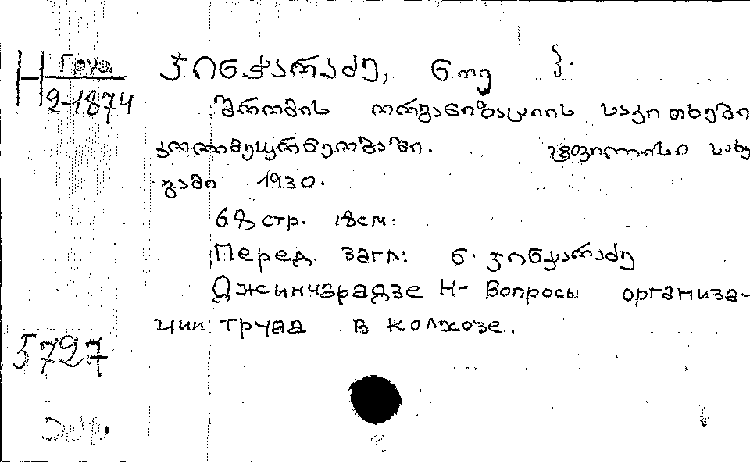 Н Груз
2-1874
ჯინჭარაძე, ნოე პ.
შრომის ორგანიზაციის საკითხები
კოლმეურნეობაში. ტფილისი სახ
გამი 1930.
68 стр. 18 см.
Перед загл: ნ. ჯინჭარაძე
Джинчарадзе Н- Вопросы организа-
ции труда в колхозе.
5727